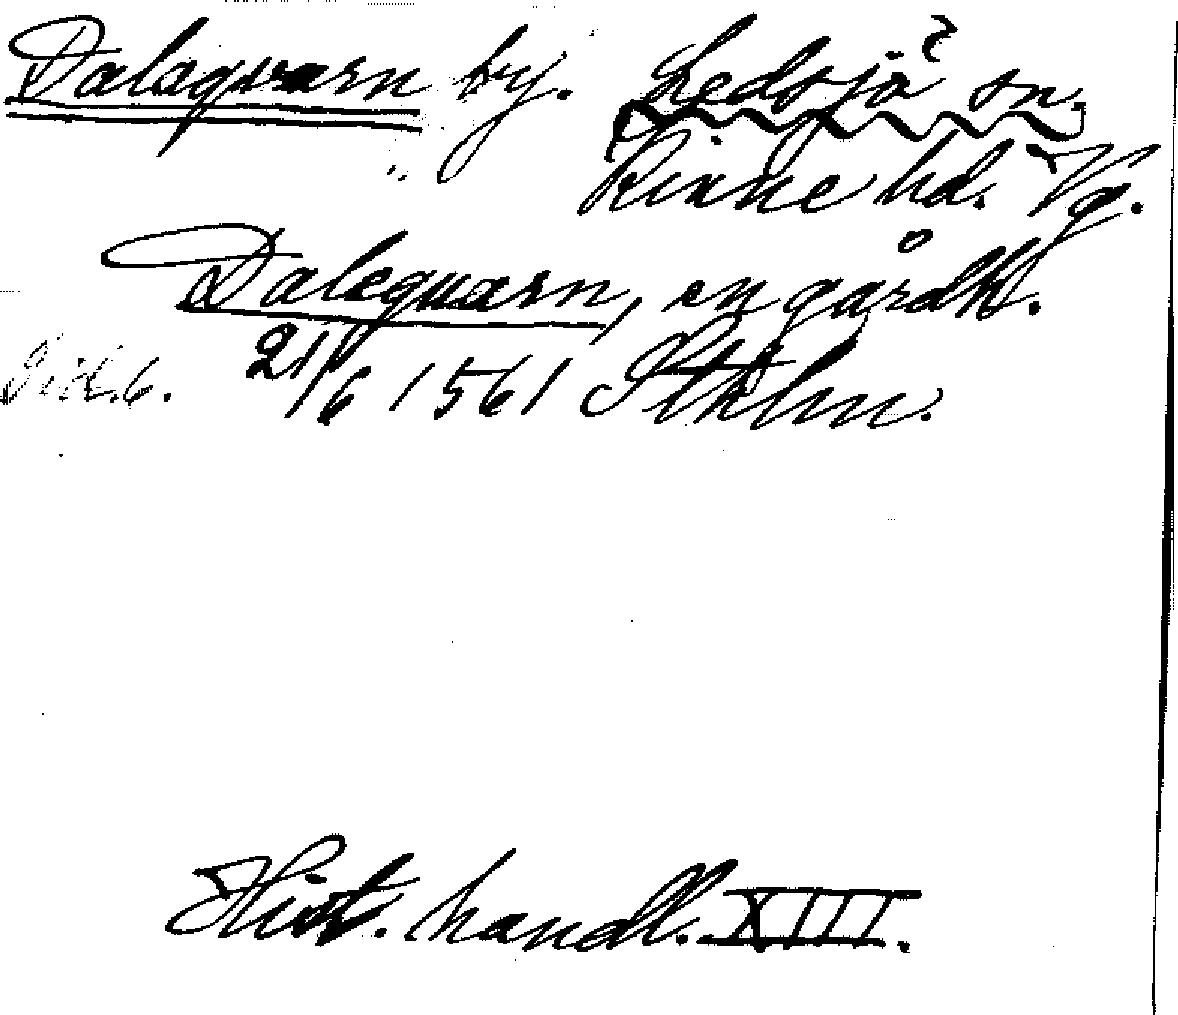 Dalaqvarn by. Ledsjö ? sn.
Kinne hd. Vg.
Dalequarn, en gårdh.
Sid. 6. 21/6 1561 Sthlm.
Hist. handl. XIII.